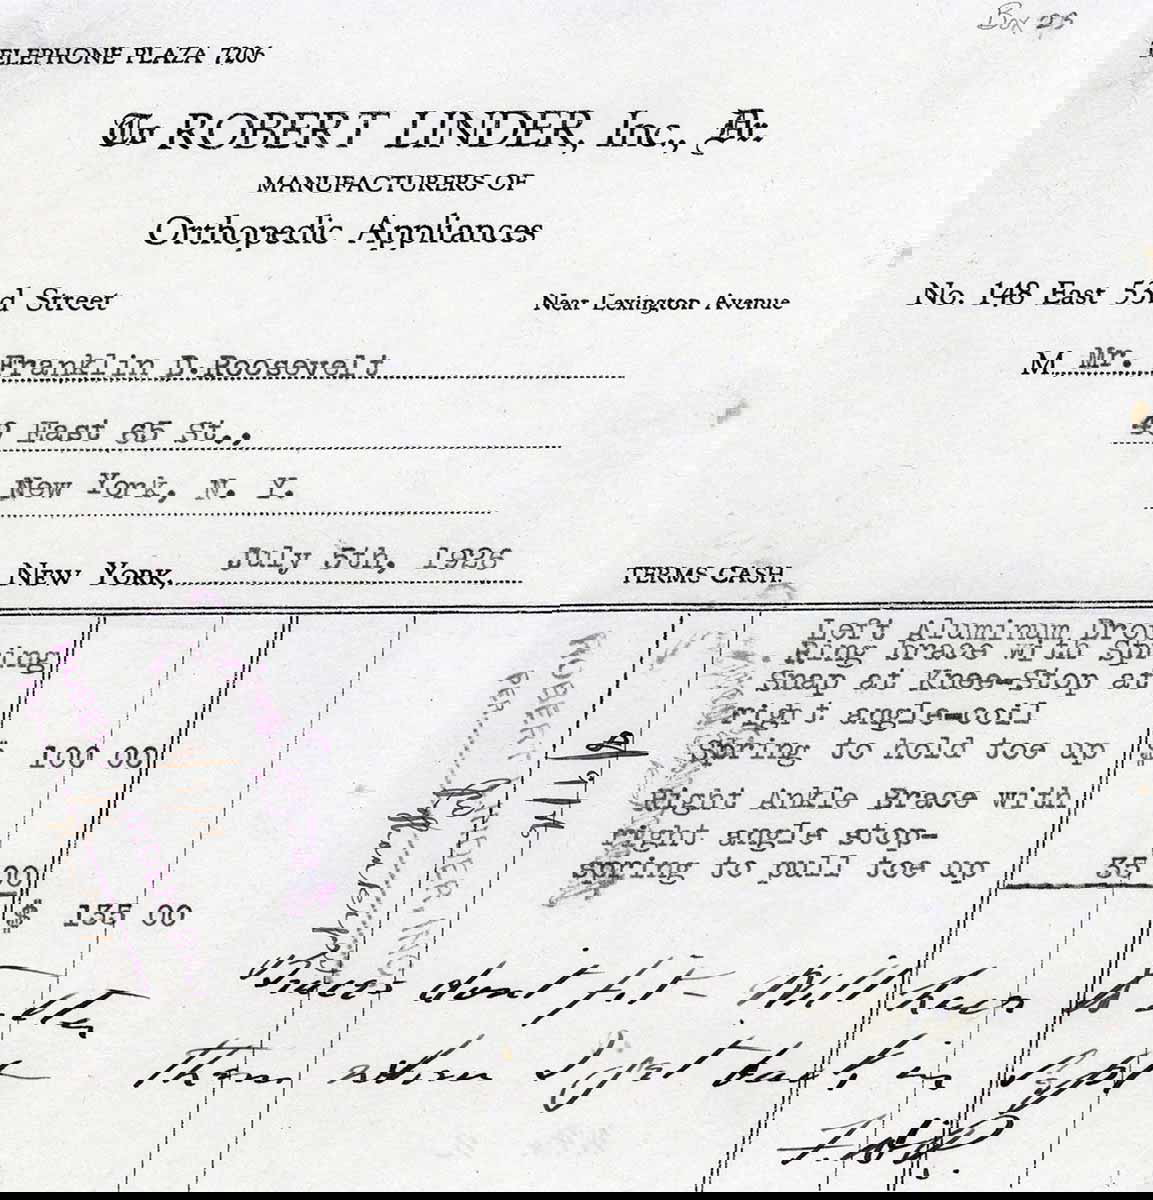 Box
TELEPHONE PLAZA 7206
To ROBERT LINDER, Inc., Dr.
MANUFACTURERS OF
Orthopedic Appliances
No. 148 East 53rd Street
Near Lexington Avenue
M Mr. Franklin D. Roosevelt
49 East 65 St.,
New York, N. Y.
NEW YORK, July 5th, 1926
TERMS CASH.
Left Aluminum Drop
Ring brace with Spring
Snap at Knee-Stop at
right angle-coil
Spring to hold toe up $ 100 00
Right Ankle Brace with
right angle stop-
spring to pull toe up 35 00
$ 135 00
ROBERT LINDER, INC.
PER
Braces don't fit - Will have to
them when I get back in Sept
F.D.R.